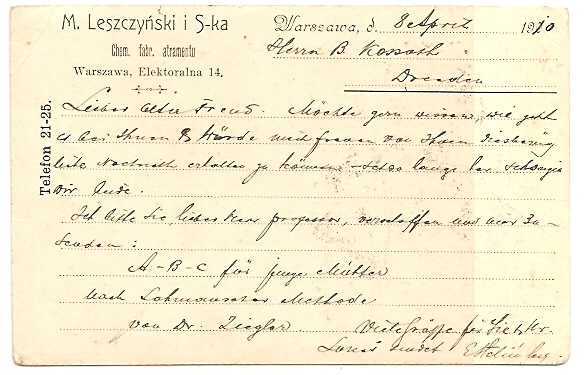 M. Leszczyński i S-ka
Chem. fabr. atramentu
Warszawa, Elektoralna 14.
Telefon 21-25.
Warszawa, d. 8 April 1910
Herrn B. Kossoth
Dresden
Lieber alter Freund. Möchte gern wissen, wie geht
es bei Ihnen & würde mich freuen von Ihnen diesbezüg
liche Nachricht erhalten zu können - schon lange her schweigen
wir beide.
Ich bitte Sie, lieber Herr Professor, verschaffen und mir zu-
senden:
A-B-C für junge Mütter
nach Lahmannscher Methode
von Dr. Ziegler. Viele Grüsse für Sie &
sendet